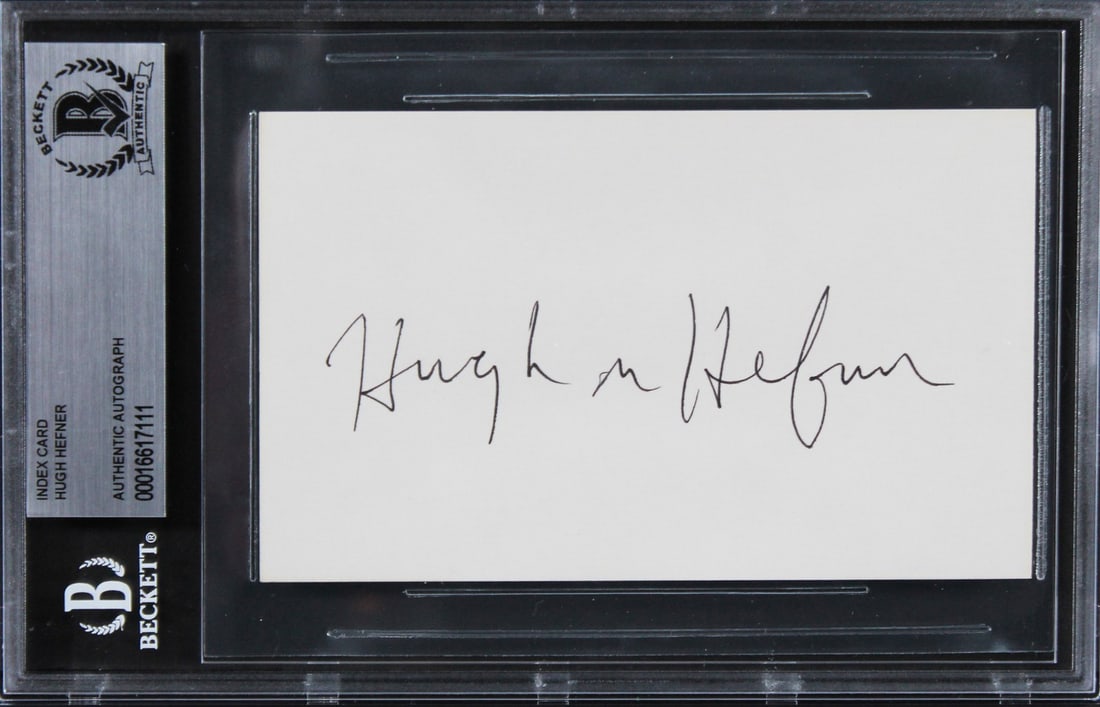 BECKETT
B
AUTHENTIC
INDEX CARD
HUGH HEFNER
AUTHENTIC AUTOGRAPH
00016617111
B
BECKETT®
Hugh m Hefner